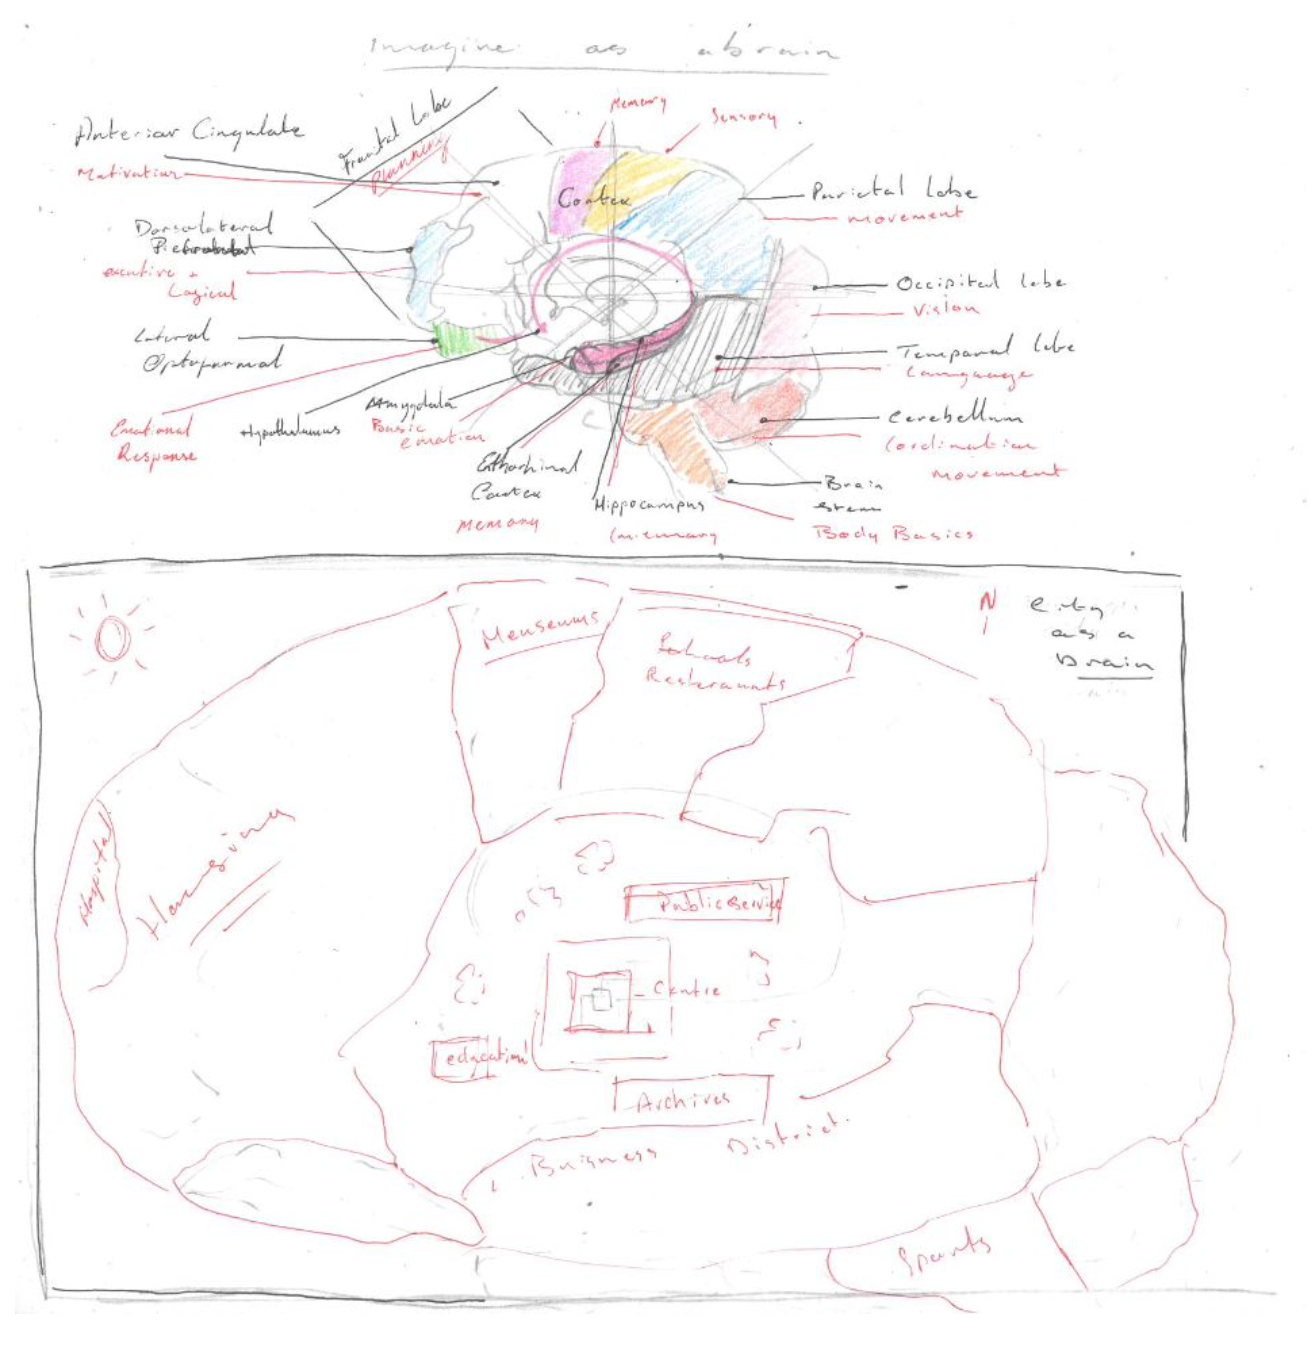 Imagine as a brain
Memory
Sensory
Anterior Cingulate
Motivation
Frontal Lobe
Planning
Cortex
Parietal lobe
movement
Dorsolateral
executive +
Logical
Occipital lobe
Vision
Lateral
Temporal lobe
Language
Emotional
Response
Hypothalamus
Amygdala
Basic
emotion
Cerebellum
Cordination
movement
Cortex
memory
Hippocampus
(memory
Brain
stem
Body Basics
N
city
as a
brain
Meuseums
Schools
Resteraunts
Hospital
Housing
Public service
Centre
education
Archives
Buisness District.
Sports